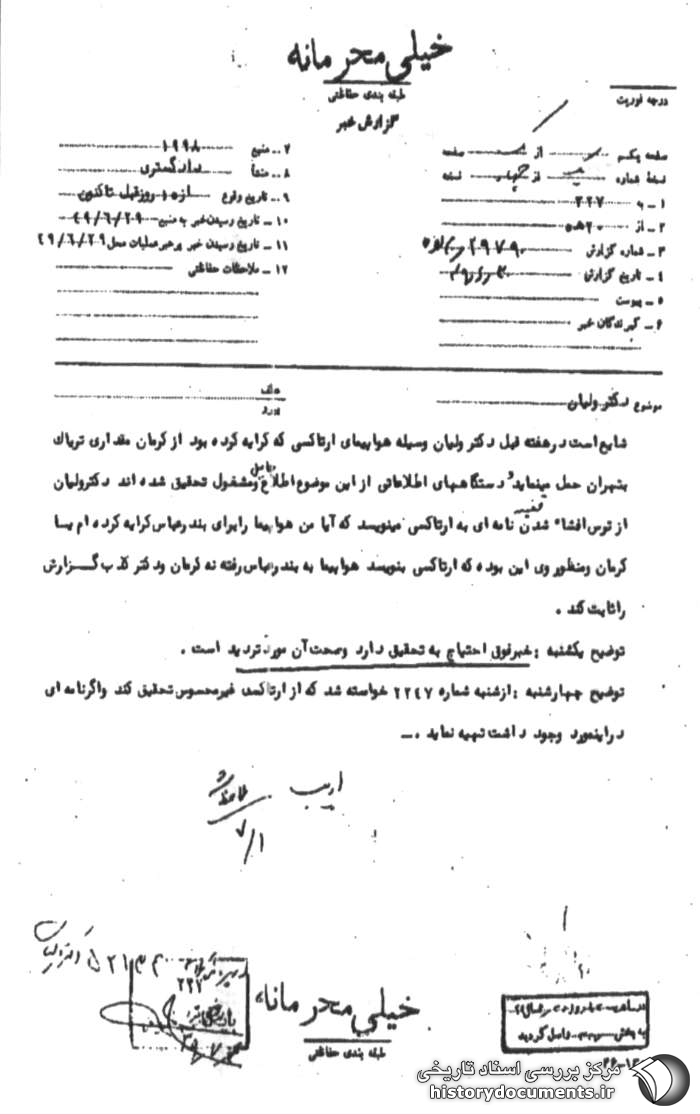 خیلی محرمانه
طبقه بندی حفاظتی
گزارش خبر
درجه فوریت
صفحه یکم از صفحه
نسخهٔ شماره از چهار نسخه
۱ـ به ۲۲۷
۲ـ از ۲۰ه۵
۳ـ شماره گزارش
۴ـ تاریخ گزارش
۵ـ پیوست
۶ـ گیرندگان خبر
۷ـ منبع ۱۹۹۸
۸ـ منشأ دادگستری
۹ـ تاریخ وقوع از ۱۵ روز قبل تاکنون
۱۰ـ تاریخ رسیدن خبر به منبع ۴۹/۶/۲۹
۱۱ـ تاریخ رسیدن خبر برهبر عملیات محل ۴۹/۶/۲۹
۱۲ـ ملاحظات حفاظتی
موضوع دکتر ولیان
شایع است در هفته قبل دکتر ولیان وسیله هواپیمای ارتاکسی که کرایه کرده بود از کرمان مقداری تریاک
بتهران حمل مینماید و دستگاههای اطلاعاتی از این موضوع اطلاع حاصل و مشغول تحقیق شده اند دکتر ولیان
از ترس افشاء شدن قضیه نامه ای به ارتاکسی مینویسد که آیا من هواپیما را برای بندرعباس کرایه کرده ام یا
کرمان و منظور وی این بوده که ارتاکسی بنویسد هواپیما به بندرعباس رفته نه کرمان و دکتر کذب گزارش
را ثابت کند .
توضیح یکشنبه : خبر فوق احتیاج به تحقیق دارد و صحت آن مورد تردید است .
توضیح چهارشنبه : از شنبه شماره ۲۲۴۷ خواسته شد که از ارتاکسی غیرمحسوس تحقیق کند و اگر نامه ای
در اینمورد وجود داشت تهیه نماید .ـ
۷/۱
خیلی محرمانه
طبقه بندی حفاظتی
۲۲۷
بایگانی
به بخش واصل گردید
مرکز بررسی اسناد تاریخی
historydocuments.ir